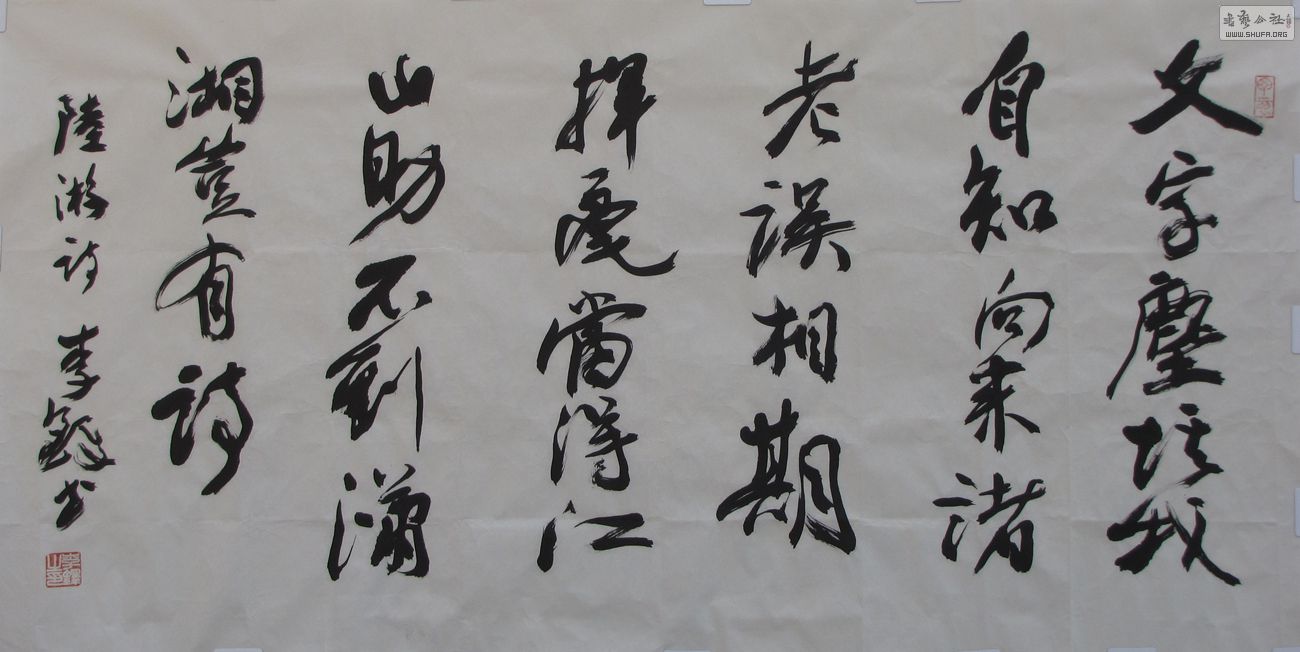 书艺公社
WWW.SHUFA.ORG
文字塵埃我
自知向来諸
老誤相期
揮毫當得江
山助不到瀟
湘豈有詩
陸游詩 李鐸书
李鐸之印